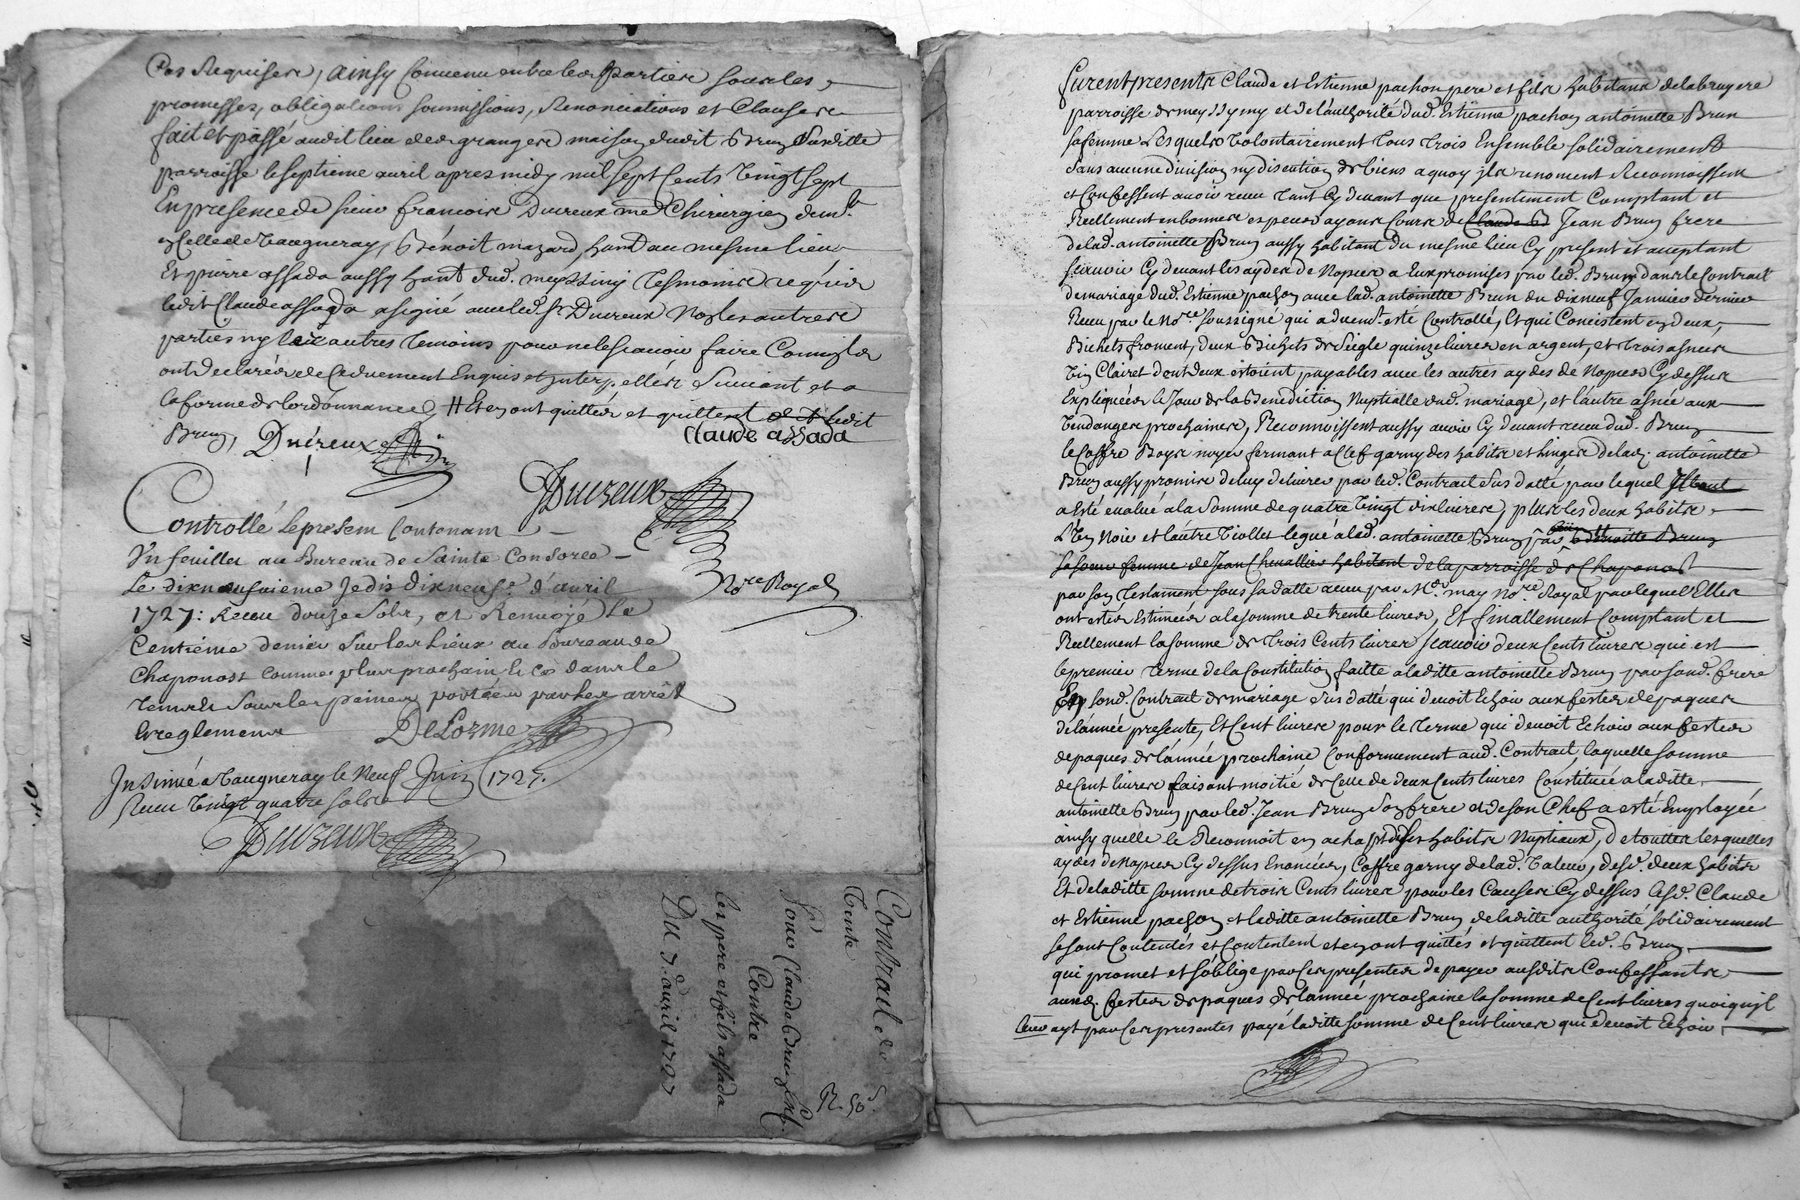 pas Requiserer, ainsy Convenu entre les partier soubs les
promesses, obligations soumissions, Renonciations et Clauser
fait et passé audit lieu des granger maison dudit Brun susditte
parroisse le septieme avril apres midy mil sept cents Vingt sept
En presence de sieur francois Ducreux me Chirurgien dem.t
Celle de Vaugneray, Benoit mazard hant au mesme lieu
Et pierre assada aussy hant dud. meyssimy Tesmoins requis
ledit Claude assada a signé avec led. Sr Ducreux Non les autres
parties ny autres temoins pour ne le scavoir faire Comm'ils
ont declarés de Ce duement Enquis et Interpellés Suivant
la forme de lordonnance // Et en ont quittés et quittent ledit
Brun, Ducreux claude assada
Duverux
Nore Royal
Controllé le present Contenant
Un feuillet au Bureau de Sainte Consorce
Le dixneufvieme Je dis dixneufe d'avril
1727: Receu douze Sols, et Renvoyé Le
Centiéme denier Sur les Lieux au Bureau de
Chaponost comme plus prochain
Sous les peines portées par les arrêts
Et reglemens DeLorme
Insinué a Vaugneray le Neuf Juin 1727.
Receu Vingt quatre sols
Duverux
Contrat de
Vente
Pour Claude Brun
Contre
les pere et fils assada
Du 7.e avril 1727
furent presents Claude et Estienne pachon pere et fils habitans de la bruyere
parroisse de messymy et de l'authorité dud. Estienne pachon antoinette Brun
sa femme Lesquels Volontairement Tous Trois Ensemble solidairement
Sans aucune division ny discution de biens a quoy ils renoncent Reconnoissent
et Confessent avoir receu Tant Cy devant que presentement Comptant et
Reellement en bonnes especes ayans Cours de Claude Jean Brun frere
de lad. antoinette Brun aussy habitant du mesme lieu Cy present et acceptant
scavoir Cy devant les aydes de Nopces a Eux promises par led. Brun dans le Contrat
de mariage dud. Estienne pachon avec lad. antoinette Brun du dixneuf Janvier dernier
Receu par le Nore soussigné qui a duem.t esté Controllé, Et qui Consistent en deux
Bichets froment, deux Bichets de Seigle quinze livres en argent, et trois asnées
Vin Clairet dont deux estoient payables avec les autres aydes de Nopces Cy dessus
Expliquées le Jour de la Benediction Nuptialle dud. mariage, et l'autre asnée aux
Vendanges prochaines, Reconnoissent aussy avoir Cy devant receu dud. Brun
le Coffre Bois noyer fermant a Clef garny des habits et Linges de lad. antoinette
Brun aussy promis de luy delivrer par led. Contrat Sus datté par lequel
a esté evalué a la Somme de quatre Vingt dix livres, plus les deux habits
L'Un Noir et l'autre Viollet legué a lad. antoinette Brun par Benoitte Brun
sa soeur femme de Jean Chevallier habitant de la parroisse de Chaponost
par son Testament sous sa datte receu par Me. may Nore Royal par lequel Elles
ont estés Estimées a la somme de trente livres, Et finallement Comptant et
Reellement la somme de Trois Cents livres scavoir deux Cents livres qui est
le premier terme de la Constitution faitte a laditte antoinette Brun par sond. frere
sond. Contrat de mariage Sus datté qui devoit Echoir aux festes de paques
de l'année presente, Et Cent livres pour le Terme qui devoit Echoir aux festes
de paques de l'année prochaine Conformement aud. Contrat, laquelle somme
de Cent livres faisant moitié de Celle de deux Cents livres Constituée a laditte
antoinette Brun par led. Jean Brun Son frere et de son Chef a esté Employée
ainsy quelle le Reconnoit en achapt de ses habits Nuptiaux, de toutes lesquelles
aydes de Nopces Cy dessus Enoncées, Coffre garny de lad. Valeur, desd. deux habits
Et de laditte somme de trois Cents livres pour les Causes Cy dessus lesd. Claude
et Estienne pachon et laditte antoinette Brun de laditte authorité solidairement
se sont Contentés et Contentent et en ont quittés et quittent led. Brun
qui promet et s'oblige par Ces presentes de payer ausdits Confessants
auxd. festes de paques de l'année prochaine la somme de Cent livres quoiqu'il
leur ayt par Ces presentes payé laditte somme de Cent livres qui devoit Echoir